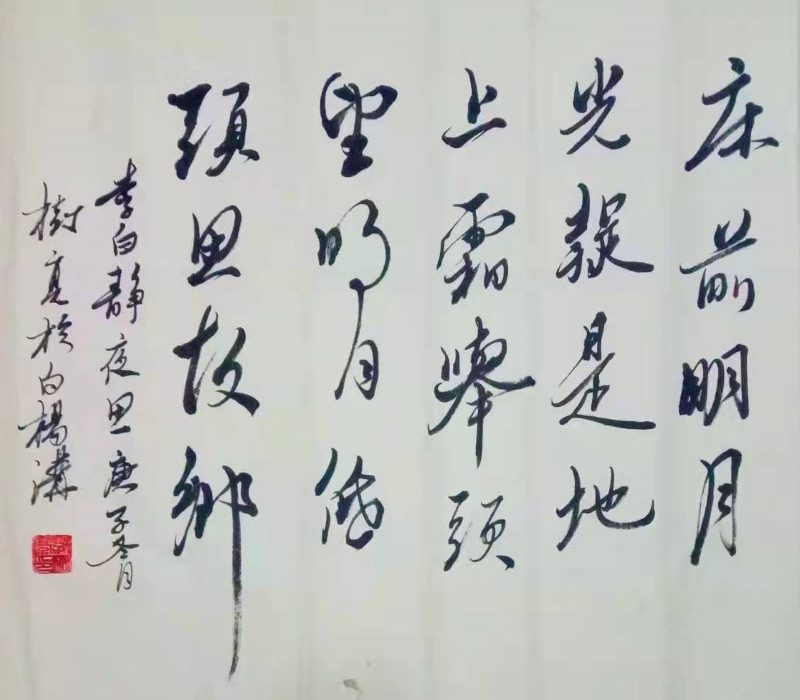 床前明月
光疑是地
上霜舉頭
望明月低
頭思故鄉
李白靜夜思庚子冬月
樹亮於白楊溝